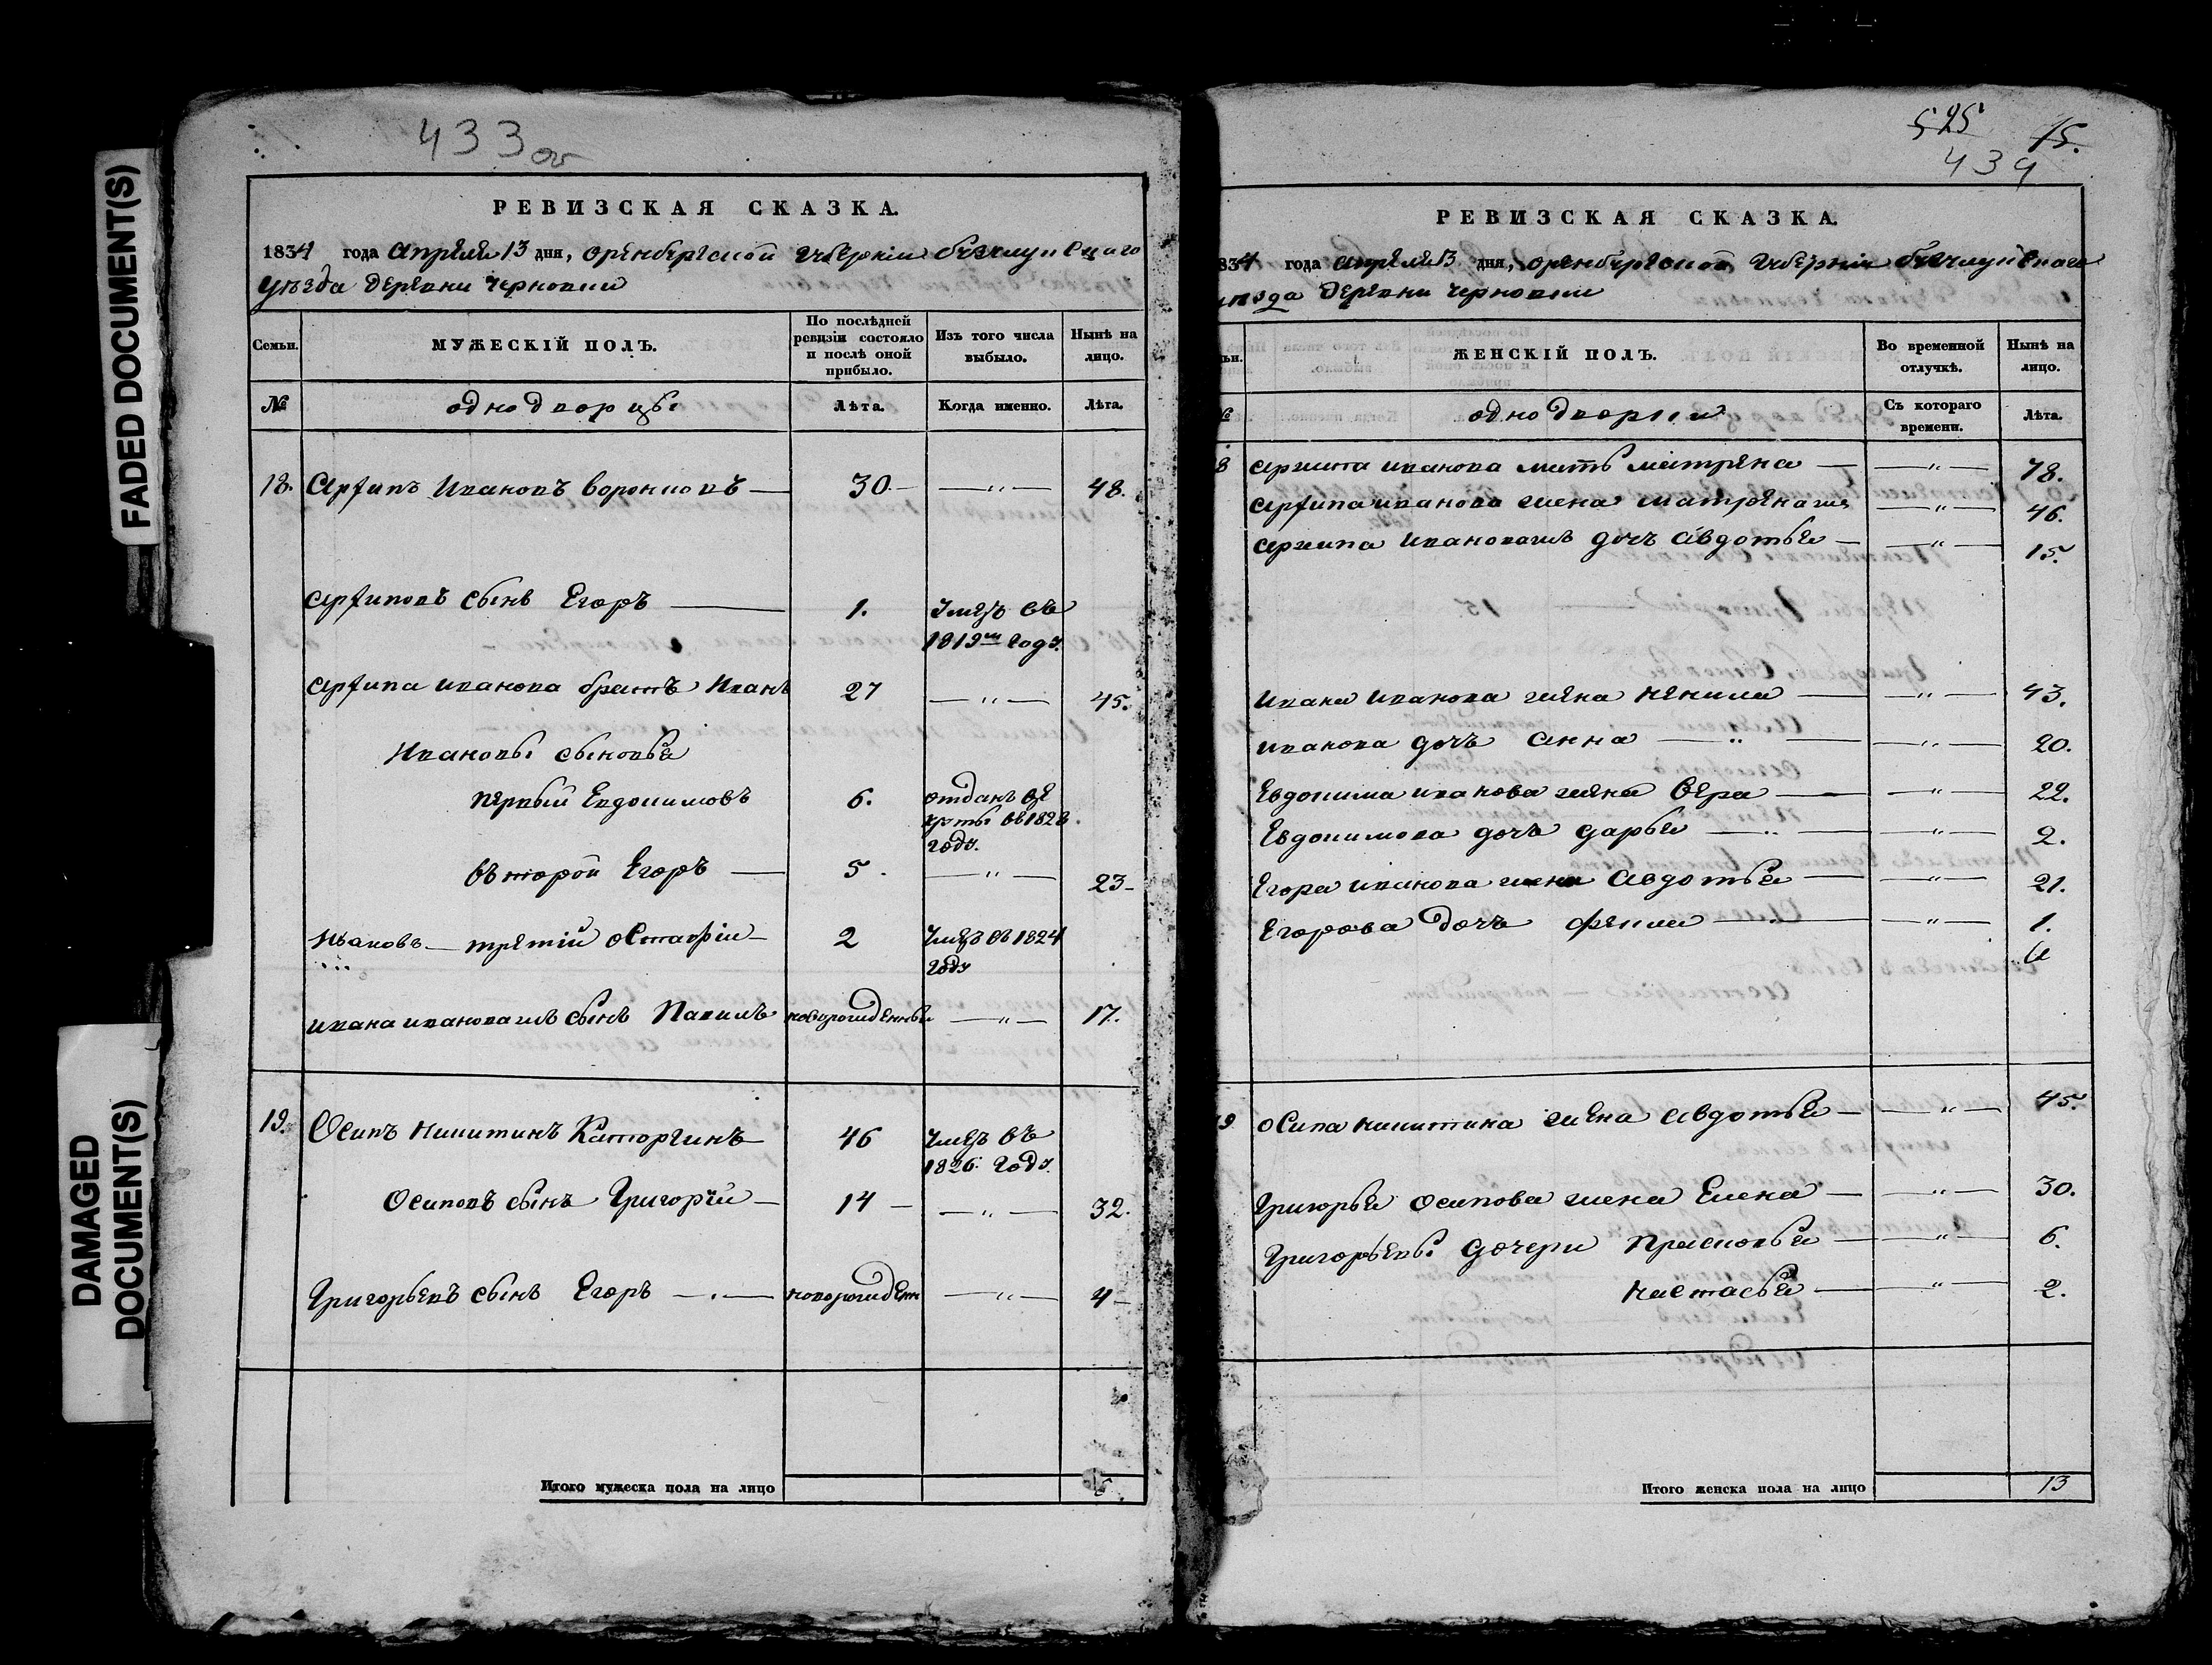 FADED DOCUMENT(S)
DAMAGED
DOCUMENT(S)
433 об
РЕВИЗСКАЯ СКАЗКА.
1834 года Апреля 13 дня, Оренбургской Губернии Бузулукскаго
Уезда деревни Черновки
Семьи. МУЖЕСКІЙ ПОЛЪ. По послѣдней ревизіи состояло и послѣ оной прибыло. Изъ того числа выбыло. Нынѣ на лицо.
№ однодворцы Лѣта. Когда именно. Лѣта.
18. Архипъ Ивановъ Воронковъ — 30 — — „ — 48.
Архиповъ сынъ Егоръ — 1. Умеръ въ
1819м году.
Архипа Иванова братъ Иванъ 27 — „ — 45.
Ивановы сыновья
первый Евдокимовъ 6. отданъ вре
круты въ 1828
году.
Второй Егоръ — 5. — „ — 23 —
Ивановъ — третий Остафий — 2 Умеръ въ 1824
году
Ивана Иванова же сынъ Павилъ новорожденный — „ — 17.
19. Осипъ Никитинъ Каторгинъ 46 Умеръ въ
1826. году.
Осиповъ сынъ Григорий — 14 — — „ — 32.
Григорьевъ сынъ Егоръ — новорожден — „ — 4 —
Итого мужеска пола на лицо 6.
525 15.
434
РЕВИЗСКАЯ СКАЗКА.
834 года Апреля 13 дня, Оренбургской Губернии Бузулукскаго
уезда деревни Черновки
ьи. ЖЕНСКІЙ ПОЛЪ. Во временной отлучкѣ. Нынѣ на лицо.
№ однодворки Съ котораго времени. Лѣта.
8 Архипа Иванова мать Матрена — — „ — 78.
Архипа Иванова жена Матрена же — „ — 46.
Архипа Иванова же дочь Авдотья — — „ — 15.
Ивана Иванова жена Ненила — — „ — 43.
Иванова дочь Анна — „ — — „ — 20.
Евдокима Иванова жена Вера — — „ — 22.
Евдокимова дочь Дарья — — „ — 2.
Егора Иванова жена Авдотья — — „ — 21.
Егорова дочь Фекла — — „ — 1.
9 Осипа Никитина жена Авдотья — — „ — 45.
Григорья Осипова жена Елена — — „ — 30.
Григорьевы дочери Прасковья — — „ — 6.
Настасья — — „ — 2.
Итого женска пола на лицо 13